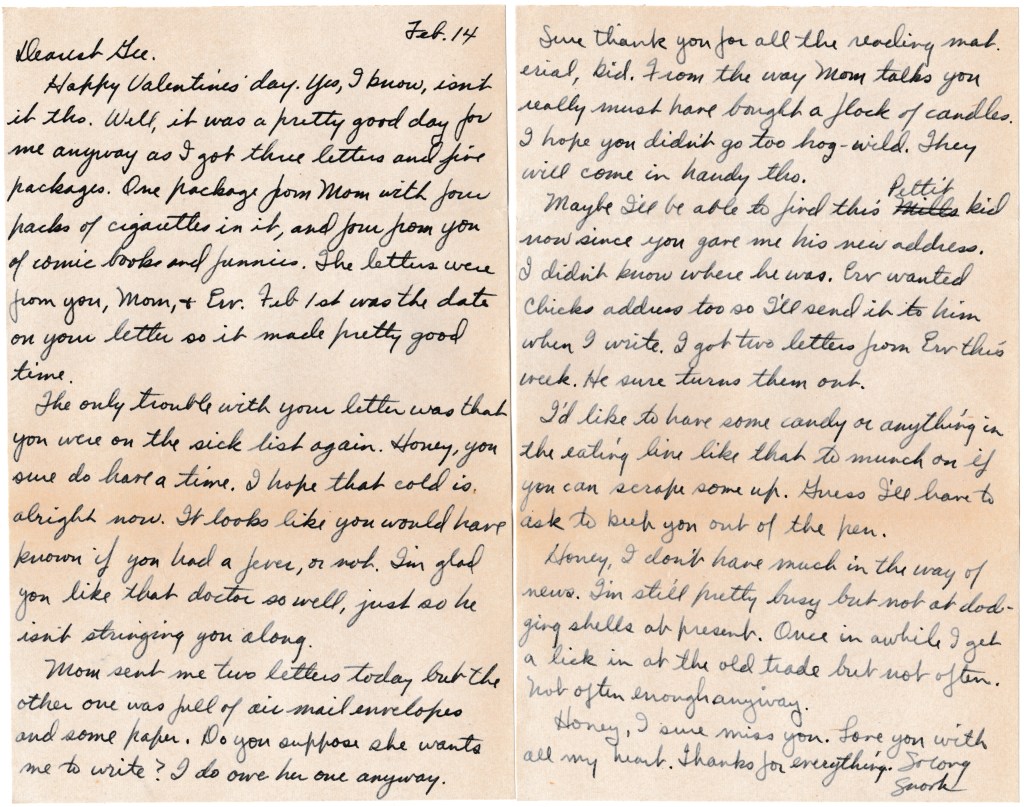 Feb. 14
Dearest Gee.
Happy Valentines' day. Yes, I know, isn't
it tho. Well, it was a pretty good day for
me anyway as I got three letters and five
packages. One package from Mom with four
packs of cigarettes in it, and four from you
of comic books and funnies. The letters were
from you, Mom, + Erv. Feb 1st was the date
on your letter so it made pretty good
time.
The only trouble with your letter was that
you were on the sick list again. Honey, you
sure do have a time. I hope that cold is
alright now. It looks like you would have
known if you had a fever, or not. I'm glad
you like that doctor so well, just so he
isn't stringing you along.
Mom sent me two letters today but the
other one was full of air mail envelopes
and some paper. Do you suppose she wants
me to write? I do owe her one anyway.
Sure thank you for all the reading mat-
erial, kid. From the way Mom talks you
really must have bought a flock of candles.
I hope you didn't go too hog-wild. They
will come in handy tho.
Pettit
Maybe I'll be able to find this Mills kid
now since you gave me his new address.
I didn't know where he was. Erv wanted
Chicks address too so I'll send it to him
when I write. I got two letters from Erv this
week. He sure turns them out.
I'd like to have some candy or anything in
the eating line like that to munch on if
you can scrape some up. Guess I'll have to
ask to keep you out of the pen.
Honey, I don't have much in the way of
news. I'm still pretty busy but not at dod-
ging shells at present. Once in awhile I get
a lick in at the old trade but not often.
Not often enough anyway.
Honey, I sure miss you. Love you with
all my heart. Thanks for everything. So long
Snork